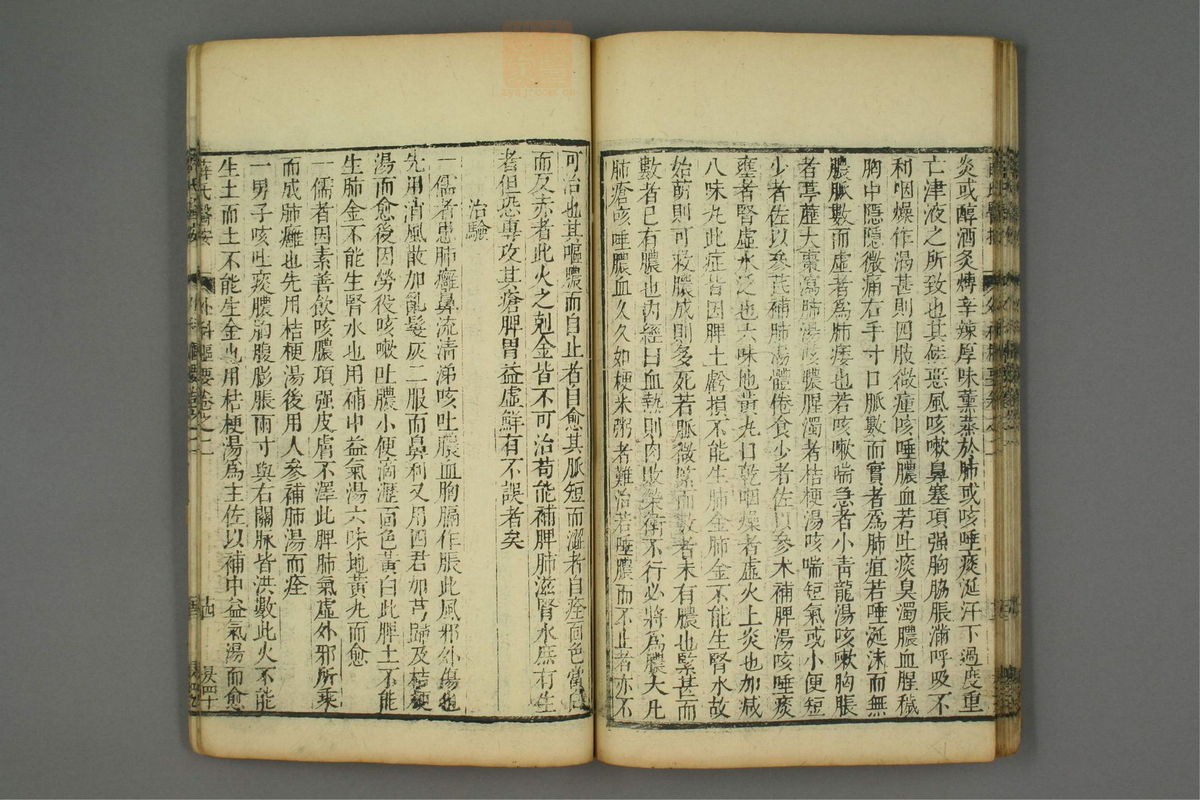 炎或醇酒炙煿辛辣厚味薰蒸於肺或咳唾痰涎汗下過度重
亡津液之所致也其候惡風咳嗽鼻塞項强胸脇脹滿呼吸不
利咽燥作渴甚則四肢微瘇咳唾膿血若吐痰臭濁膿血腥穢
胸中隱隱微痛右手寸口脈數而實者爲肺疽若唾涎沫而無
膿脈數而虛者爲肺痿也若咳嗽喘急者小青龍湯咳嗽胸脹
者葶藶大棗瀉肺湯咳膿腥濁者桔梗湯咳喘短氣或小便短
少者佐以參芪補肺湯體倦食少者佐以參术補脾湯咳唾痰
壅者腎虛水泛也六味地黃丸口乾咽燥者虛火上炎也加減
八味丸此症皆因脾土虧損不能生肺金肺金不能生腎水故
始萌則可救膿成則多死若脈微緊而數者未有膿也緊甚而
數者已有膿也內經曰血熱則肉敗榮衛不行必將爲膿大凡
肺瘡咳唾膿血久久如粳米粥者難治若唾膿而不止者亦不
可治也其嘔膿而自止者自愈其脈短而濇者自痊面色當白
而反赤者此火之剋金皆不可治苟能補脾肺滋腎水庶有生
者但恐專攻其瘡脾胃益虛鮮有不誤者矣
治驗
一儒者患肺癰鼻流清涕咳吐膿血胸膈作脹此風邪外傷也
先用消風散加亂髮灰二服而鼻利又用四君加芎歸及桔梗
湯而愈後因勞役咳嗽吐膿小便滴瀝面色黃白此脾土不能
生肺金不能生腎水也用補中益氣湯六味地黃丸而愈
一儒者因素善飲咳膿項强皮膚不澤此脾肺氣虛外邪所乘
而成肺癰也先用桔梗湯後用人參補肺湯而痊
一男子咳吐痰膿胸腹膨脹兩寸與右關脉皆洪數此火不能
生土而土不能生金也用桔梗湯爲主佐以補中益氣湯而愈
薛氏醫案 外科樞要卷之二 十四